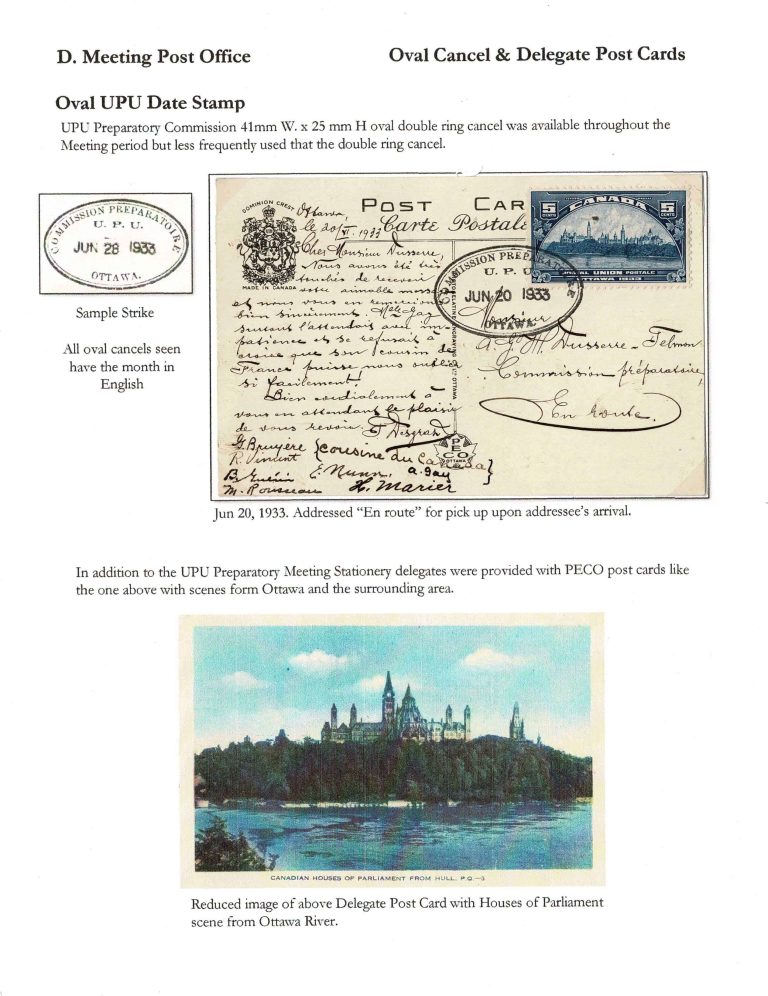 D. Meeting Post Office
Oval Cancel & Delegate Post Cards
Oval UPU Date Stamp
UPU Preparatory Commission 41mm W. x 25 mm H oval double ring cancel was available throughout the
Meeting period but less frequently used that the double ring cancel.
COMMISSION PREPARATOIRE
U. P. U.
JUN 28 1933
OTTAWA.
Sample Strike
All oval cancels seen
have the month in
English
DOMINION CREST
MADE IN CANADA
POST CAR
Carte Postale
5 CENTS CANADA 5 CENTS
POSTAL UNION POSTALE
OTTAWA 1933
COMMISSION PREPARATOIRE
U. P. U
JUN 20 1933
OTTAWA
Ottawa,
le 20/VI. 1933
Cher Monsieur Dusserre,
Nous avons été très
touchés de recevoir
votre aimable
et nous vous en remercions
bien sincèrement. Mlle Gay
surtout l'attendait avec im-
patience et se refusait à
croire que son cousin de
France puisse nous oublier
si facilement!
Bien cordialement à
vous en attendant le plaisir
de vous revoir. Desgran
G. Bruyère {cousine du Canada}
R. Vincent
B. Guérin E. Nunn, a. Gay
M. Rousseau H. Marier
Monsieur
Dusserre-Telmon
Commission préparatoire,
En route.
PECO
OTTAWA
Jun 20, 1933. Addressed “En route” for pick up upon addressee's arrival.
In addition to the UPU Preparatory Meeting Stationery delegates were provided with PECO post cards like
the one above with scenes form Ottawa and the surrounding area.
CANADIAN HOUSES OF PARLIAMENT FROM HULL, P.Q.—3
Reduced image of above Delegate Post Card with Houses of Parliament
scene from Ottawa River.